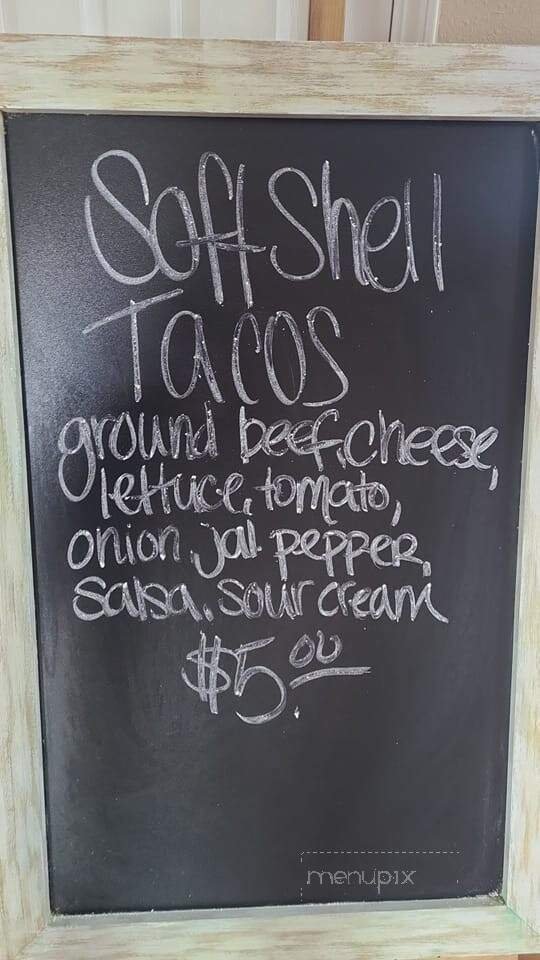 Soft Shell
Tacos
ground beef, cheese,
lettuce, tomato,
onion, jal. pepper,
salsa, sour cream
$5.00
menupix